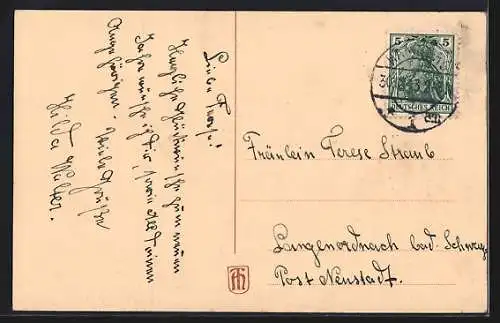 Liebe Terese!
Herzliche Glückwünsche zum neuen
Jahre wünsche ich dir, sowie all deinen
Angehörigen. Viele Grüße
Hilda Walter.
5 5
DEUTSCHES REICH
30
Fräulein Terese Straub
Langenordnach bad. Schwarzw.
Post Neustadt.